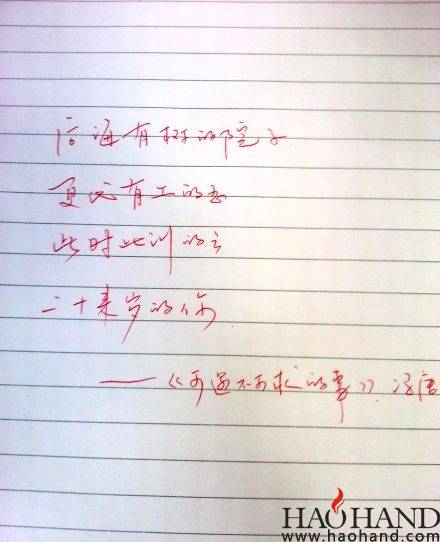 后海有树的院子
夏代有工的玉
此时此刻的云
二十来岁的你
——《可遇不可求的事》冯唐
HAOHAND
www.haohand.com